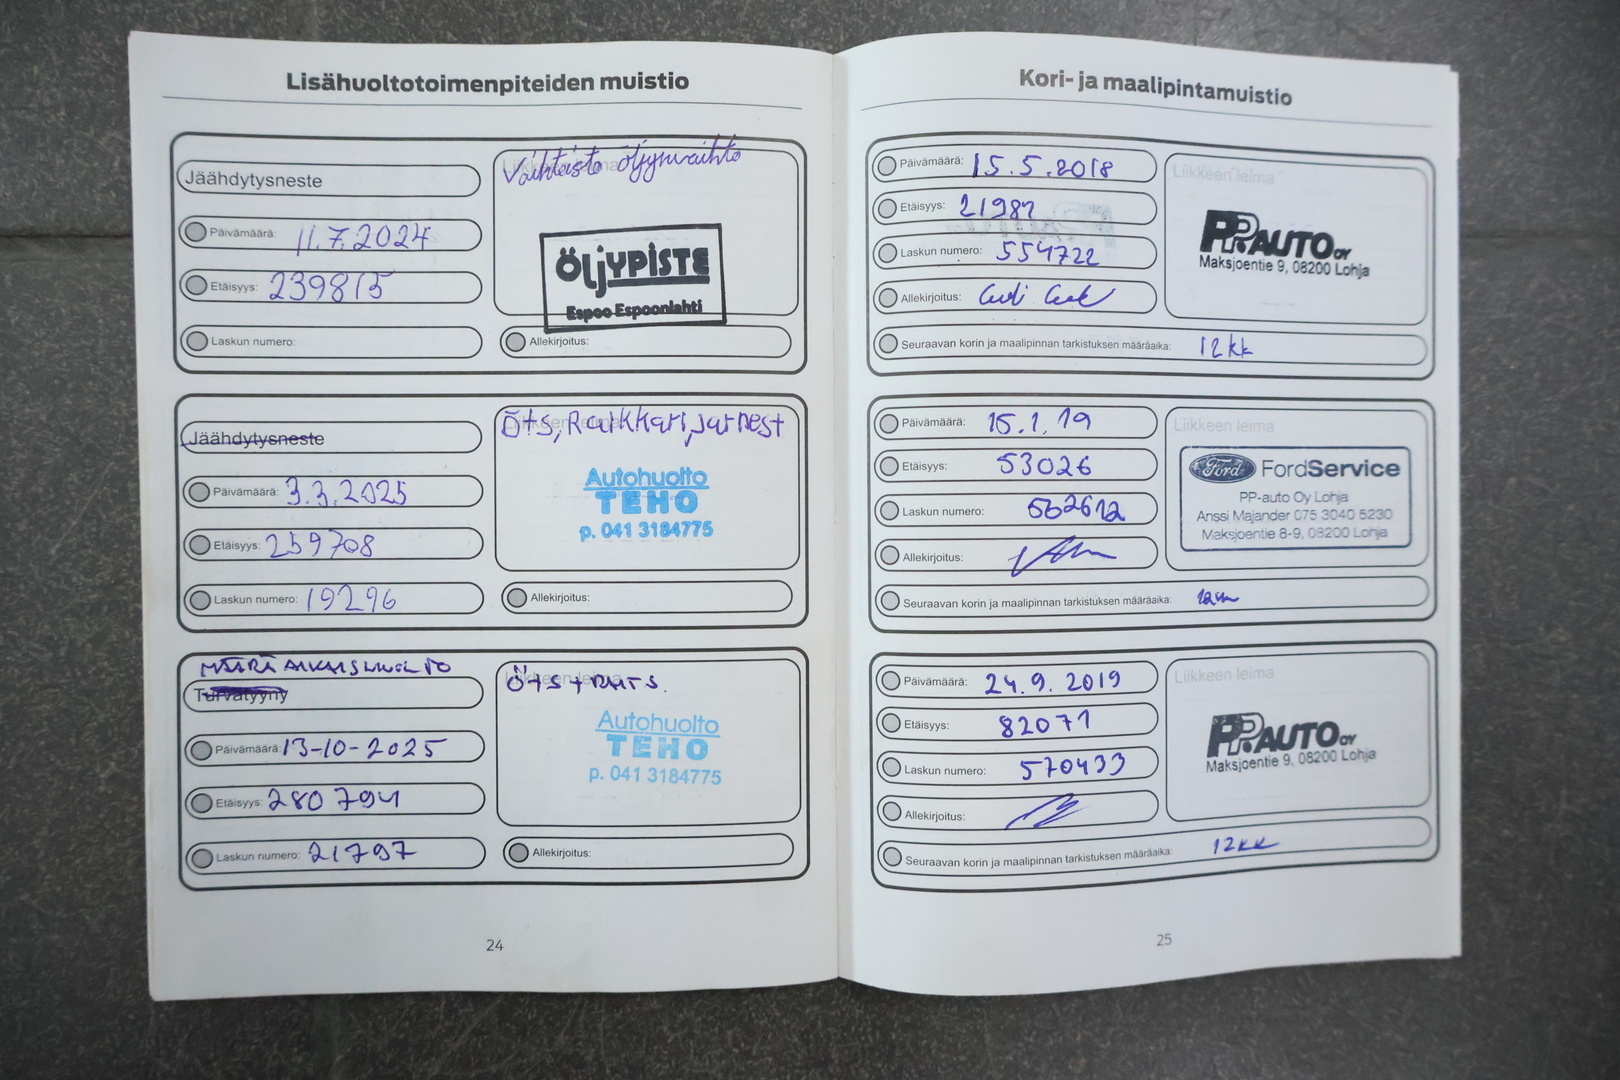 Lisähuoltotoimenpiteiden muistio
Jäähdytysneste
Päivämäärä: 11.7.2024
Etäisyys: 239815
Laskun numero:
Liikkeen leima
Vaihteisto öljynvaihto
ÖljYPISTE
Espoo Espoonlahti
Allekirjoitus:
Jäähdytysneste
Päivämäärä: 3.3.2025
Etäisyys: 259708
Laskun numero: 19296
Liikkeen leima
Öts, Raikkari, jarnest
Autohuolto
TEHO
p. 041 3184775
Allekirjoitus:
MÄÄRÄAIKAISHUOLTO
Turvatyyny
Päivämäärä: 13-10-2025
Etäisyys: 280794
Laskun numero: 21797
Liikkeen leima
ÖTS + RMTS.
Autohuolto
TEHO
p. 041 3184775
Allekirjoitus:
24
Kori- ja maalipintamuistio
Päivämäärä: 15.5.2018
Etäisyys: 21987
Laskun numero: 554722
Allekirjoitus:
Liikkeen leima
PP-AUTO OY
Maksjoentie 9, 08200 Lohja
Seuraavan korin ja maalipinnan tarkistuksen määräaika: 12kk
Päivämäärä: 15.1.19
Etäisyys: 53026
Laskun numero: 562612
Allekirjoitus:
Liikkeen leima
Ford FordService
PP-auto Oy Lohja
Anssi Majander 075 3040 5230
Maksjoentie 8-9, 08200 Lohja
Seuraavan korin ja maalipinnan tarkistuksen määräaika:
Päivämäärä: 24.9.2019
Etäisyys: 82071
Laskun numero: 570433
Allekirjoitus:
Liikkeen leima
PP-AUTO OY
Maksjoentie 9, 08200 Lohja
Seuraavan korin ja maalipinnan tarkistuksen määräaika: 12kk
25